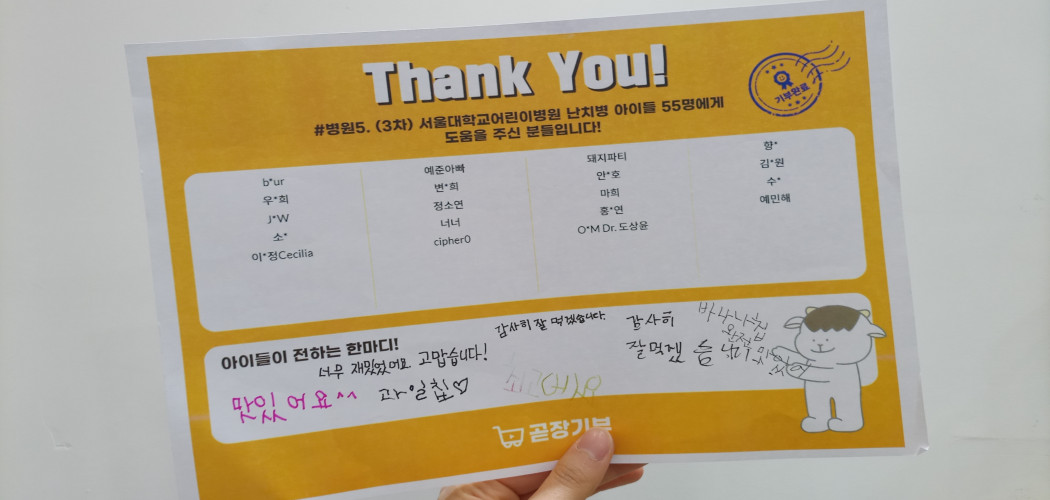 Thank You!
기부완료
#병원5. (3차) 서울대학교어린이병원 난치병 아이들 55명에게
도움을 주신 분들입니다!
b*ur
우*희
J*W
소*
이*정Cecilia
예준아빠
변*희
정소연
너너
cipher0
돼지파티
안*호
마희
홍*연
O*M Dr. 도상윤
향*
김*원
수*
예민해
아이들이 전하는 한마디!
너무 재밌었어요. 고맙습니다!
맛있어요^^
과일칩♡
감사히 잘 먹겠습니다.
감사히
잘먹겠습니다
바나나칩
곧장기부